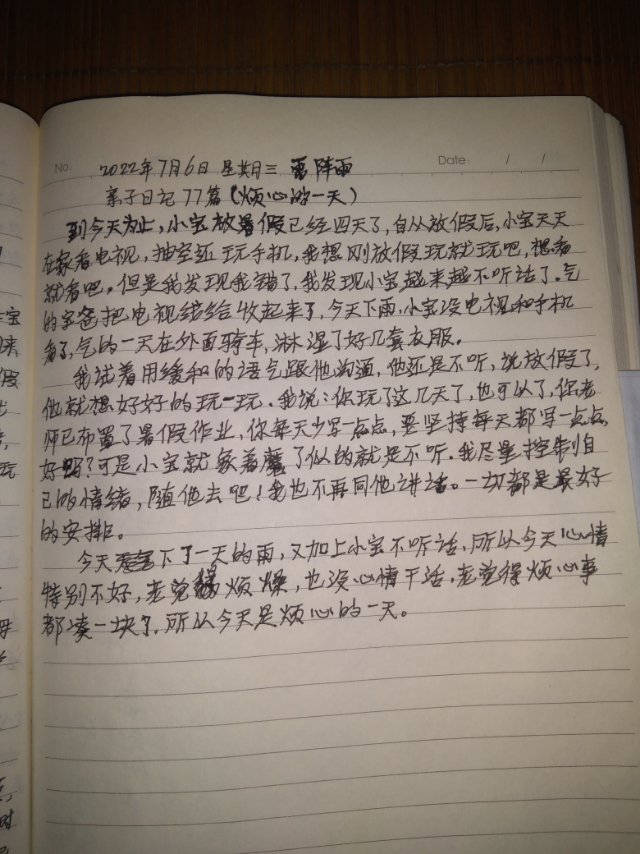 No.
Date: / /
2022年7月6日 星期三 雷阵雨
亲子日记77篇(烦心的一天)
到今天为止,小宝放暑假已经四天了,自从放假后,小宝天天
在家看电视,抽空还玩手机,我想刚放假玩就玩吧,想看
就看吧。但是我发现我错了,我发现小宝越来越不听话了。气
的宝爸把电视线给收起来了,今天下雨,小宝没电视和手机
看了,气的一天在外面骑车,淋湿了好几套衣服。
我试着用缓和的语气跟他沟通,他还是不听,说放假了,
他就想好好的玩一玩。我说:你玩了这几天了,也可以了,你老
师已布置了暑假作业,你每天少写一点点,要坚持每天都写一点点,
好吗?可是小宝就象着魔了似的就是不听。我尽量控制自
己的情绪,随他去吧!我也不再同他讲话。一切都是最好
的安排。
今天下了一天的雨,又加上小宝不听话,所以今天心情
特别不好,老觉得烦燥,也没心情干活,老觉得烦心事
都凑一块了,所以今天是烦心的一天。